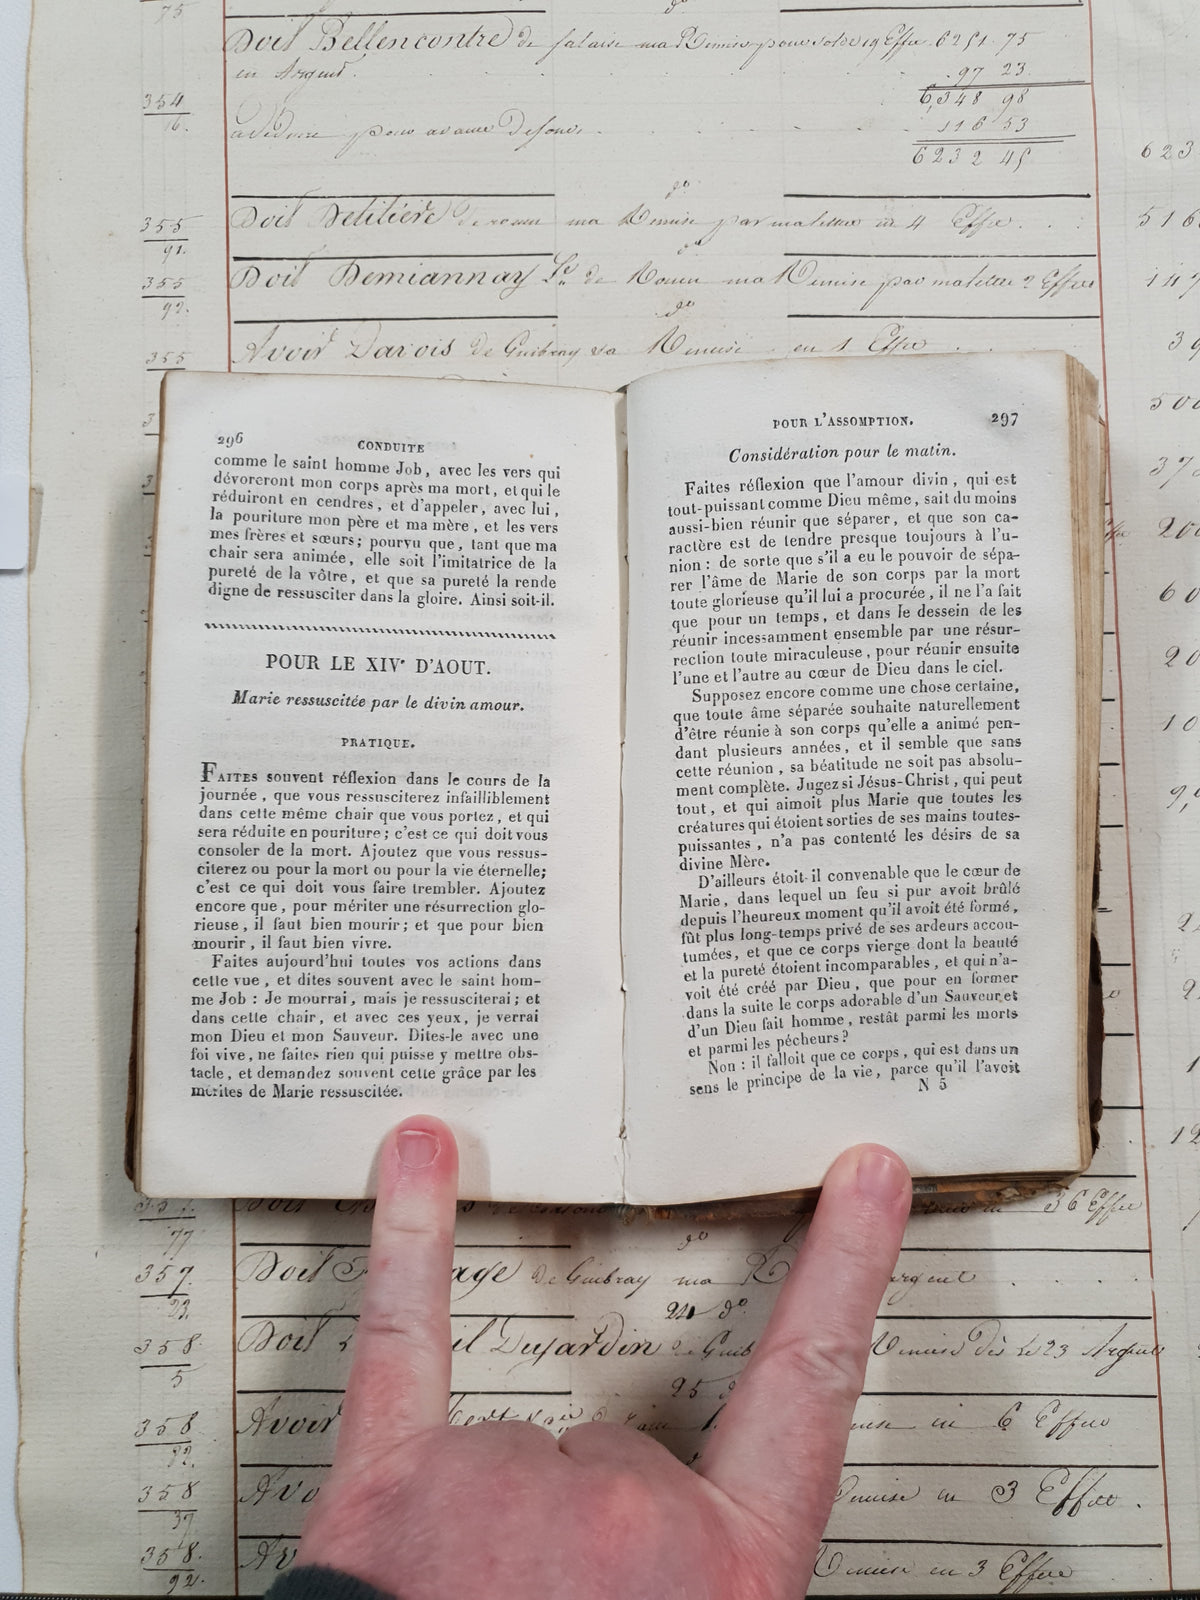 75
do
Doit Bellencontre de falaise ma Remise pour solde 19 Effet. 6251. 75
en Argent.
97 23.
354
6,348 98
16.
116 53
6232 45
623
do
355
Doit Delitière de rouen ma Remise par ma lettre en 4 Effts.
516
91.
do
355
Doit Demiannay Sr. de Rouen ma Remise par ma lettre 2 Effets
147
92.
do
355
Avoir Darois de Guibray sa Remise en 1 Effet
39
500
37
200
60
20
10
9,
2
1
12
296
CONDUITE
comme le saint homme Job, avec les vers qui
dévoreront mon corps après ma mort, et qui le
réduiront en cendres, et d'appeler, avec lui,
la pouriture mon père et ma mère, et les vers
mes frères et sœurs; pourvu que, tant que ma
chair sera animée, elle soit l'imitatrice de la
pureté de la vôtre, et que sa pureté la rende
digne de ressusciter dans la gloire. Ainsi soit-il.
POUR LE XIVe D'AOUT.
Marie ressuscitée par le divin amour.
PRATIQUE.
FAITES souvent réflexion dans le cours de la
journée, que vous ressusciterez infailliblement
dans cette même chair que vous portez, et qui
sera réduite en pouriture; c'est ce qui doit vous
consoler de la mort. Ajoutez que vous ressus-
citerez ou pour la mort ou pour la vie éternelle;
c'est ce qui doit vous faire trembler. Ajoutez
encore que, pour mériter une résurrection glo-
rieuse, il faut bien mourir; et que pour bien
mourir, il faut bien vivre.
Faites aujourd'hui toutes vos actions dans
cette vue, et dites souvent avec le saint hom-
me Job : Je mourrai, mais je ressusciterai; et
dans cette chair, et avec ces yeux, je verrai
mon Dieu et mon Sauveur. Dites-le avec une
foi vive, ne faites rien qui puisse y mettre obs-
tacle, et demandez souvent cette grâce par les
mérites de Marie ressuscitée.
POUR L'ASSOMPTION.
297
Considération pour le matin.
Faites réflexion que l'amour divin, qui est
tout-puissant comme Dieu même, sait du moins
aussi-bien réunir que séparer, et que son ca-
ractère est de tendre presque toujours à l'u-
nion : de sorte que s'il a eu le pouvoir de sépa-
rer l'âme de Marie de son corps par la mort
toute glorieuse qu'il lui a procurée, il ne l'a fait
que pour un temps, et dans le dessein de les
réunir incessamment ensemble par une résur-
rection toute miraculeuse, pour réunir ensuite
l'une et l'autre au cœur de Dieu dans le ciel.
Supposez encore comme une chose certaine,
que toute âme séparée souhaite naturellement
d'être réunie à son corps qu'elle a animé pen-
dant plusieurs années, et il semble que sans
cette réunion, sa béatitude ne soit pas absolu-
ment complète. Jugez si Jésus-Christ, qui peut
tout, et qui aimoit plus Marie que toutes les
créatures qui étoient sorties de ses mains toutes-
puissantes, n'a pas contenté les désirs de sa
divine Mère.
D'ailleurs étoit-il convenable que le cœur de
Marie, dans lequel un feu si pur avoit brûlé
depuis l'heureux moment qu'il avoit été formé,
fût plus long-temps privé de ses ardeurs accou-
tumées, et que ce corps vierge dont la beauté
et la pureté étoient incomparables, et qui n'a-
voit été créé par Dieu, que pour en former
dans la suite le corps adorable d'un Sauveur et
d'un Dieu fait homme, restât parmi les morts
et parmi les pécheurs?
Non : il falloit que ce corps, qui est dans un
sens le principe de la vie, parce qu'il l'avoit
N 5
Doit
36 Effets
77
do
357
Doit age de Guibray ma R argent
23.
24 do
358
Doit il Dujardin de Guib Remise dès le 23 Argent
5
25 d
358
Avoir mise en 6 Effets
22.
358
Avo Remise en 3 Effets.
37
358.
Av Remise en 3 Effets
92.